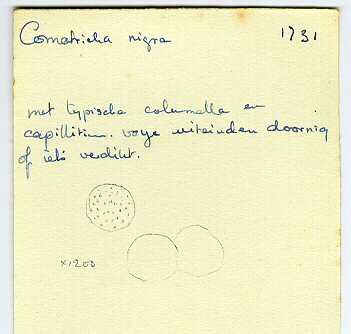 Comatricha nigra 1731
met typische columella en
capillitium. vrye uiteinden doornig
of iets verdikt.
x1200